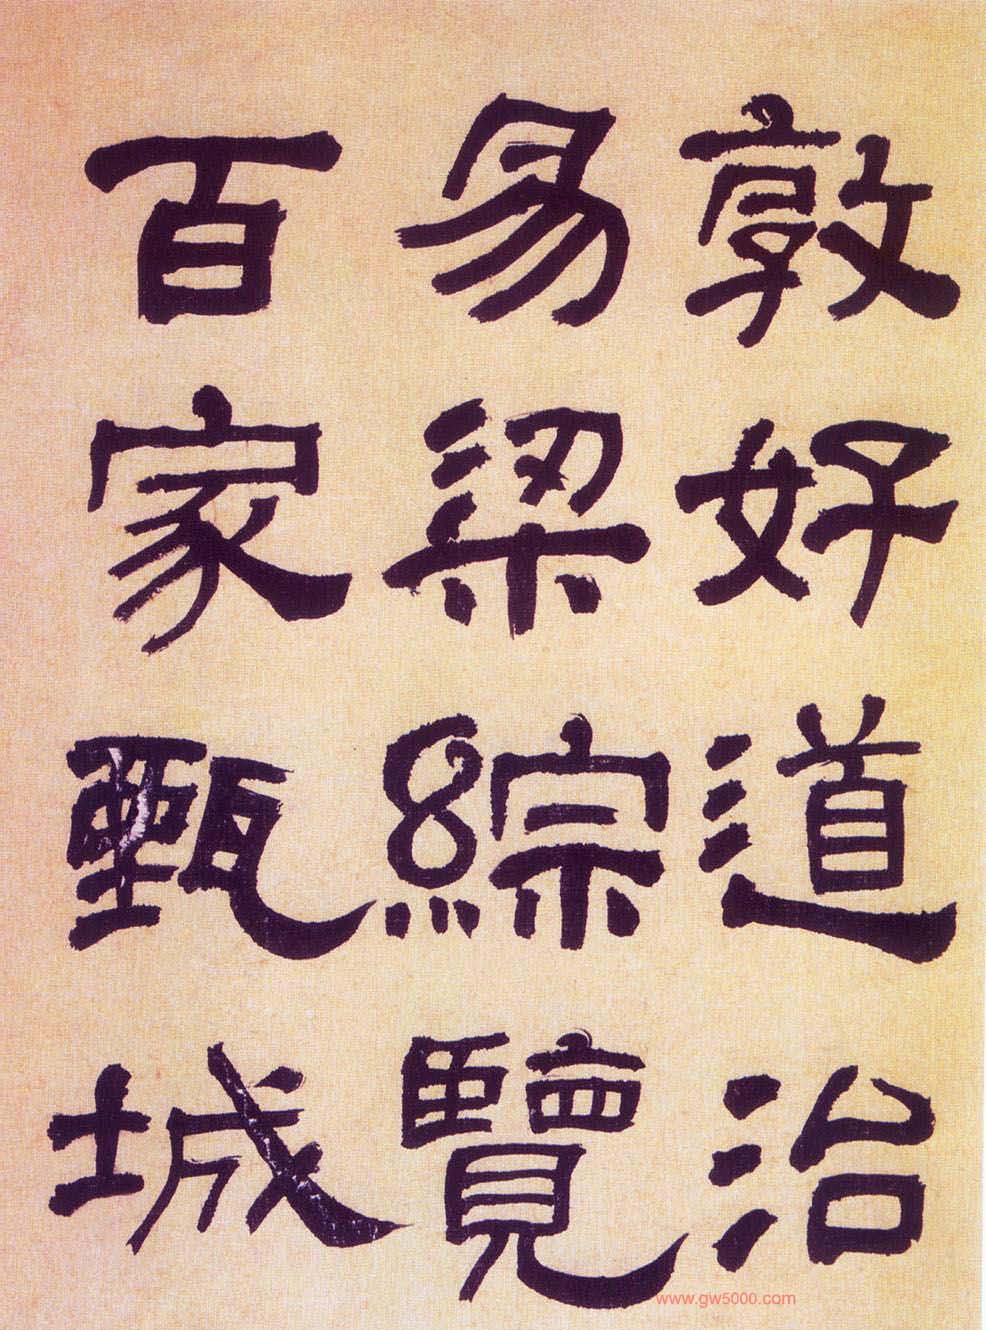 敦好道治
易梁綜覽
百家甄城
www.gw5000.com